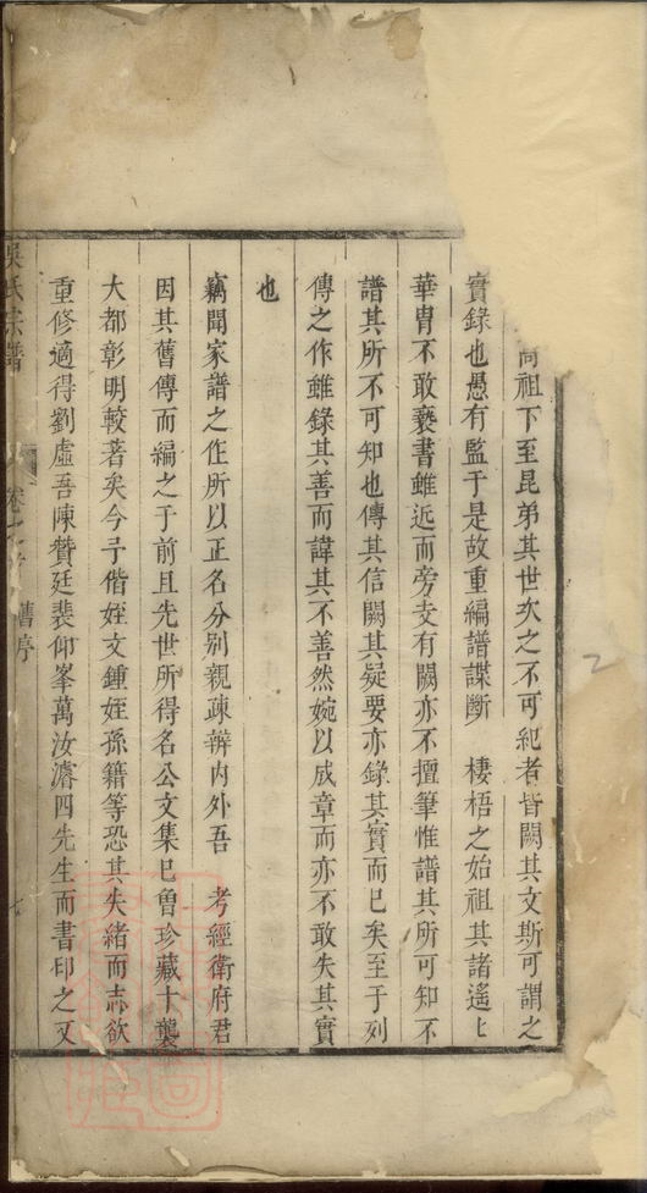 祖下至昆弟其世次之不可紀者皆闕其文斯可謂之
實錄也愚有監于是故重編譜諜斷　棲梧之始祖其諸遙匕
華冑不敢褻書雖近而旁支有闕亦不擅筆惟譜其所可知不
譜其所不可知也傳其信闕其疑要亦錄其實而已矣至于列
傳之作雖錄其善而諱其不善然婉以成章而亦不敢失其實
也
竊聞家譜之作所以正名分别親疎辨内外吾　考經衛府君
因其舊傳而編之于前且先世所得名公文集已曾珍藏十襲
大都彰明較著矣今予偕姪文鍾姪孫籍等恐其失緒而志欲
重修適得劉虛吾陳贊廷裴仰峯萬汝濬四先生而書印之又
吳氏宗譜　卷之　舊序　七
2